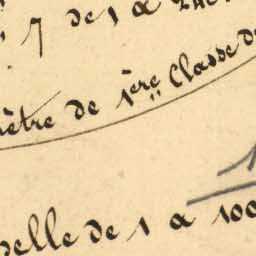 7 de 1 a
ètre de 1ère Classe d
pelle de 1 a 100